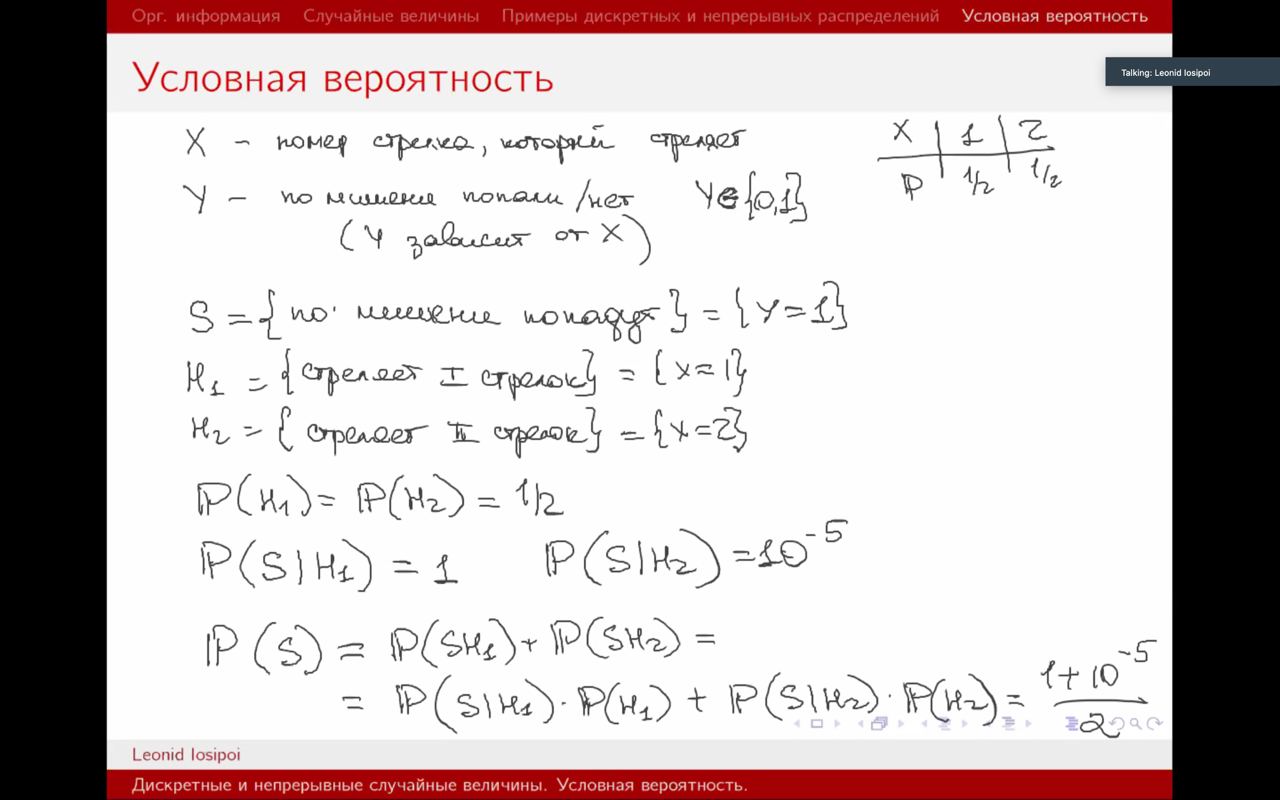 Орг. информация Случайные величины Примеры дискретных и непрерывных распределений Условная вероятность
Условная вероятность
Talking: Leonid Iosipoi
X – номер стрелка, который стреляет
X | 1 | 2
P | 1/2 | 1/2
Y – по мишени попали/нет Y∈{0,1}
(Y зависит от X)
S = {по мишени попадут} = {Y=1}
H₁ = {стреляет I стрелок} = {X=1}
H₂ = {стреляет II стрелок} = {X=2}
ℙ(H₁) = ℙ(H₂) = 1/2
ℙ(S|H₁) = 1 ℙ(S|H₂) = 10⁻⁵
ℙ(S) = ℙ(SH₁) + ℙ(SH₂) =
= ℙ(S|H₁)·ℙ(H₁) + ℙ(S|H₂)·ℙ(H₂) = (1+10⁻⁵)/2
Leonid Iosipoi
Дискретные и непрерывные случайные величины. Условная вероятность.